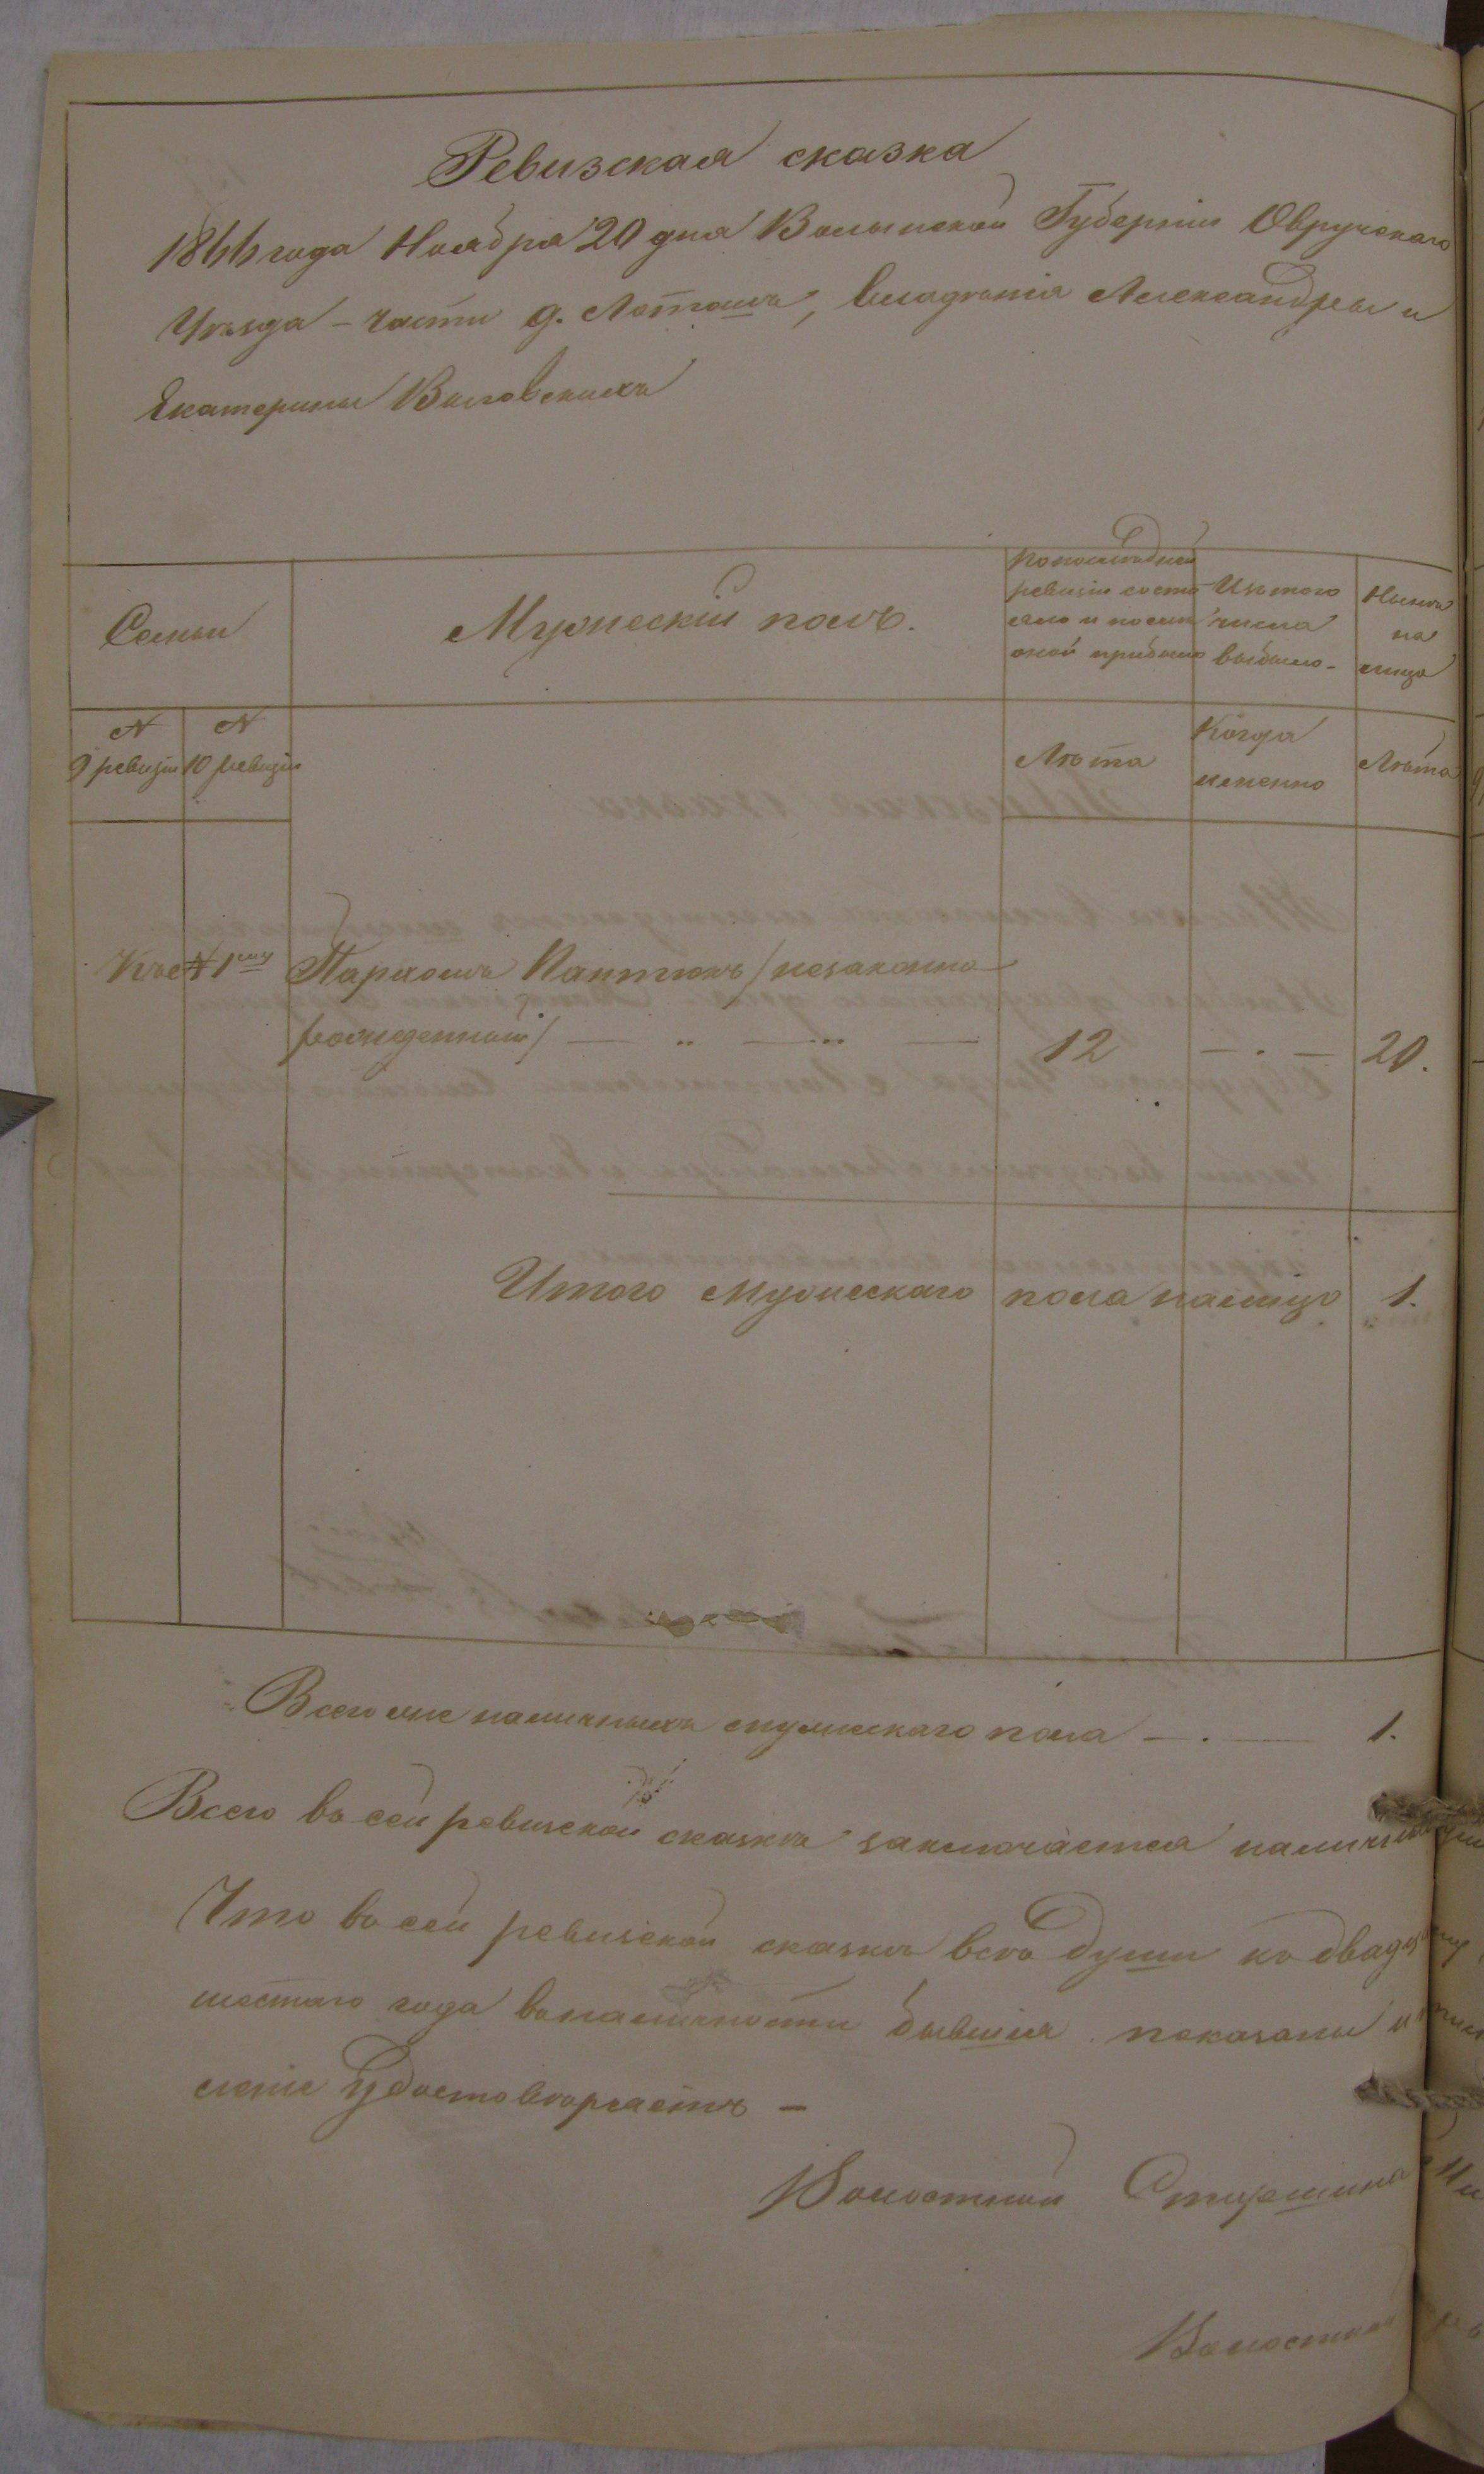 Ревизская сказка
1866 года Ноября 20 дня Волынской Губерніи Овручскаго
Уѣзда – части д. Лоташа, владѣнія Александры и
Екатерины Выговскихъ
Семьи
Мужескій полъ.
По послѣдней
ревизіи состо
яло и послѣ
оной прибыло
Изъ того
числа
выбыло
Нынѣ
на
лицо
N
9 ревизіи
N
10 ревизіи
Лѣта
Когда
именно
Лѣта
Къ N 1му
Пархомъ /незаконно
рожденный/ 12 20.
Итого мужескаго пола налицо 1.
Всего же наличныхъ мужескаго пола 1.
Всего въ сей ревизской сказкѣ заключается
Что въ сей ревизской сказкѣ всѣ души по
шестаго года въ наличности бывшія показаны
удостовѣряетъ –
Волостной Старшина
Волостной